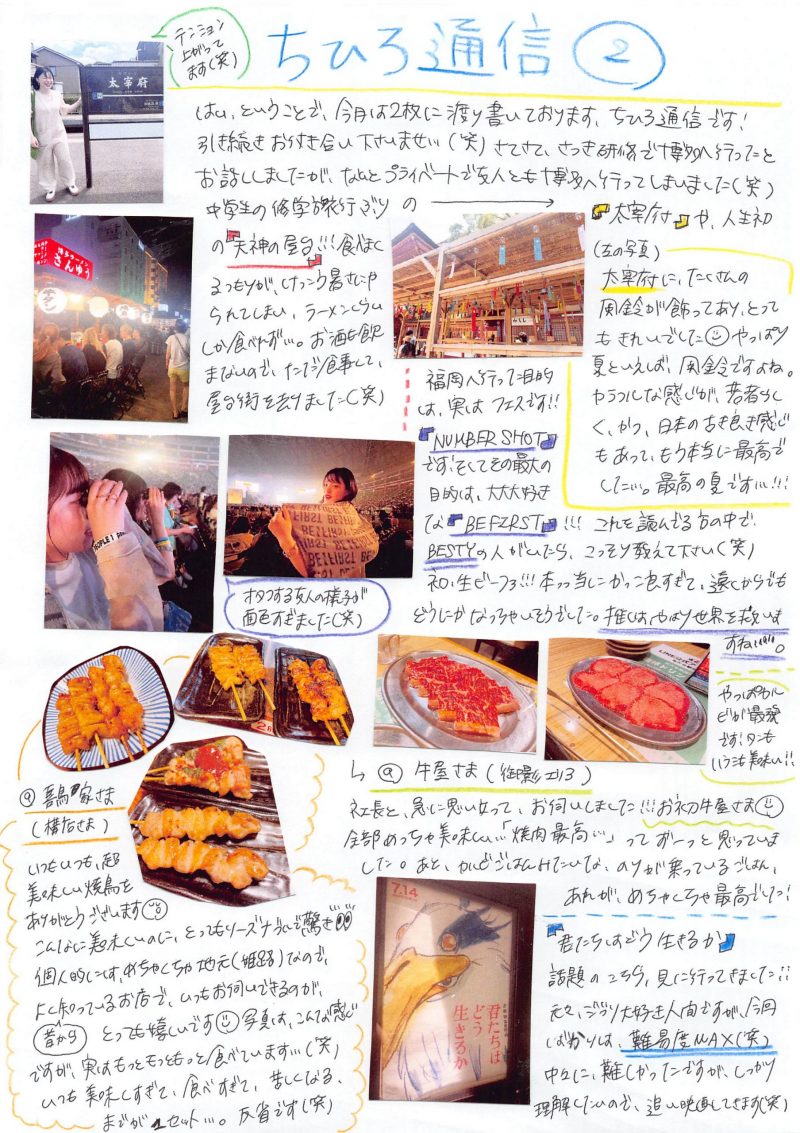 テンション
上がって
ます(笑)
ちひろ通信 ②
太宰府
はい、ということで、今月は2枚に渡り書いております、ちひろ通信です!
引き続きお付き合い下さいませ…(笑) さてさて、さっき研修で博多へ行ったと
お話ししましたが、なんとプライベートで友人とも博多へ行ってしまいました(笑)
中学生の修学旅行ぶり の → 『太宰府』や、人生初
の『天神の屋台』!!! 食べまく
るつもりが、けっこう暑さにや
られてしまい、ラーメンくらい
しか食べれず…。お酒も飲
まないので、ただ食事して、
屋台街を去りました(笑)
博多ラーメン
さんゆう
牛タン
(左の写真)
太宰府に、たくさんの
風鈴が飾ってあり、とって
もきれいでした やっぱり
夏といえば、風鈴ですよね。
カラフルな感じが、若者らし
く、かつ、日本の古き良き感じ
もあって、もう本当に最高で
した…。最高の夏です…!!!
福岡へ行った目的
は、実はフェスです!!
『NUMBER SHOT』
です!そしてその最大の
目的は、大大大好き
な『BE:FIRST』!!! これを読んでる方の中で
BESTYの人がいたら、こっそり教えて下さい(笑)
初・生ビーファ!!! 本っ当にかっこ良すぎて、遠くからでも
どうにかなっちゃいそうでした。推しはやはり世界を救いま
すね!!!!!。
オタクする友人の様子が
面白すぎました(笑)
やっぱりカル
ビが最強
です!タンも
いつも美味い!!
↳ @ 牛屋さま(御影エリア)
社長と、急に思い立って、お伺いしました!!! お初牛屋さま
全部めっちゃ美味しい…「焼肉最高…」ってずーっと思っていま
した。あと、かどごはんみたいな、のりが乗っているごはん、
あれが、めちゃくちゃ最高でした!
@ 喜鳥家さま
(横左さま)
いつもいつも、超
美味しい焼鳥を
ありがとうございます
こんなに美味しいのに、とってもリーズナブルで驚き
個人的には、めちゃくちゃ地元(姫路)なので、
よく知っているお店で、いつもお伺いできるのが、
昔から
とっても嬉しいです 写真は、こんな感じ
ですが、実はもっともっともっと食べています…(笑)
いつも美味しすぎて、食べすぎて、苦しくなる、
までが1セット…。反省です(笑)
7.14
君たちは
どう
生きるか
『君たちはどう生きるか』
話題のこちら、見に行ってきました!!
元々、ジブリ大好き人間ですが、今回
ばかりは、難易度MAX(笑)
中々に、難しかったですが、しっかり
理解したいので、追い映画してきます(笑)